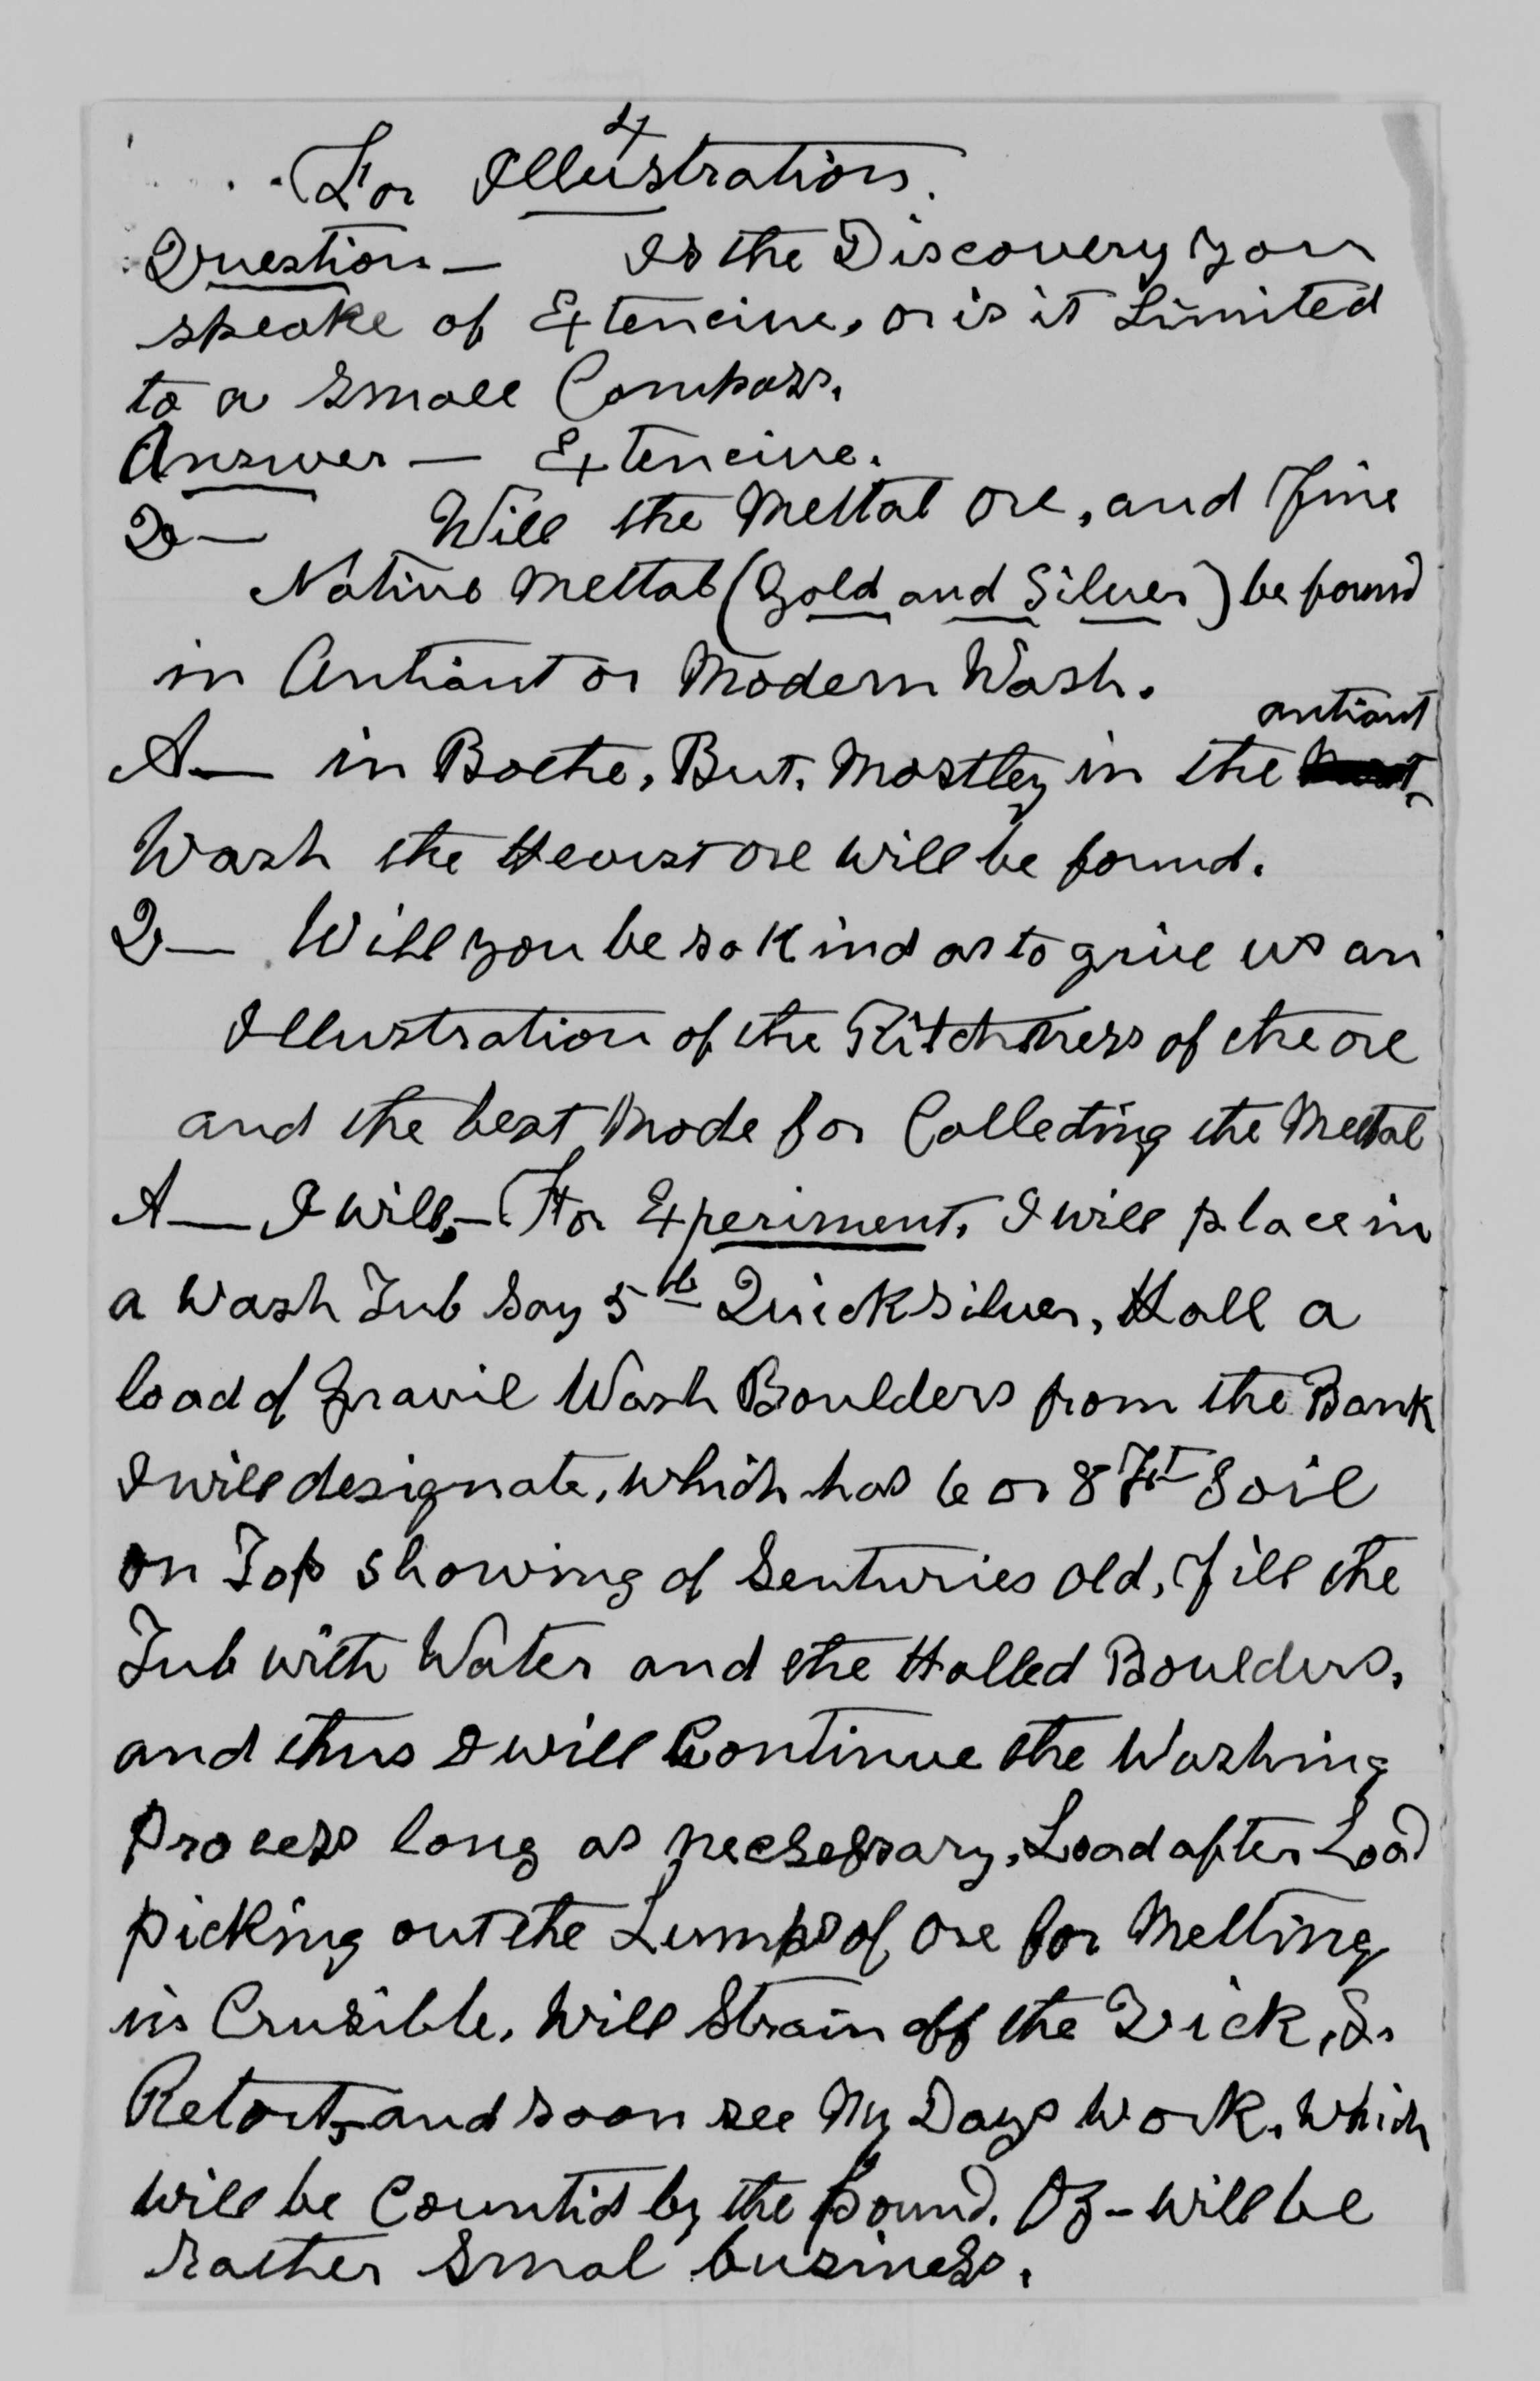 4
For Illustration.
Question — Is the Discovery you
speake of Extencive, or is it Limited
to a Small Compass.
Answer — Extencive.
Q — Will the Mettal ore, and Fine
Native Mettal (Gold and Silver) be found
in Antiant or Modern Wash.
antiant
A — in Bothe, But, Mostley in the
Wash the Hevist ore will be found.
Q — Will you be so Kind as to give us an
Illustration of the Ritchness of the ore
and the best Mode for Collecting the Mettal
A — I will, — For Experiment, I will place in
a Wash Tub Say 5 lb Quick Silver, Hall a
load of Gravil Wash Boulders from the Bank
I will designate, which has 6 or 8 Ft Soil
on Top Showing of Senturies old, Fill the
Tub with Water and the Halled Boulders,
and thus I will Continue the Washing
Process long as necessary, Load after Load
picking out the Lumps of ore for Melting
in Crusible, Will Strain off the Quick, S.
Retort, and soon see My Days Work, Which
will be Countid by the Pound. Oz – will be
rather Smal business.